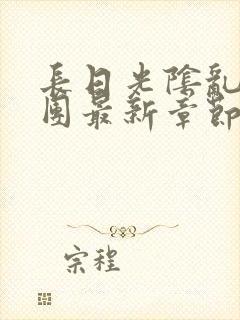 長日光陰亂
團最新章節
宗程